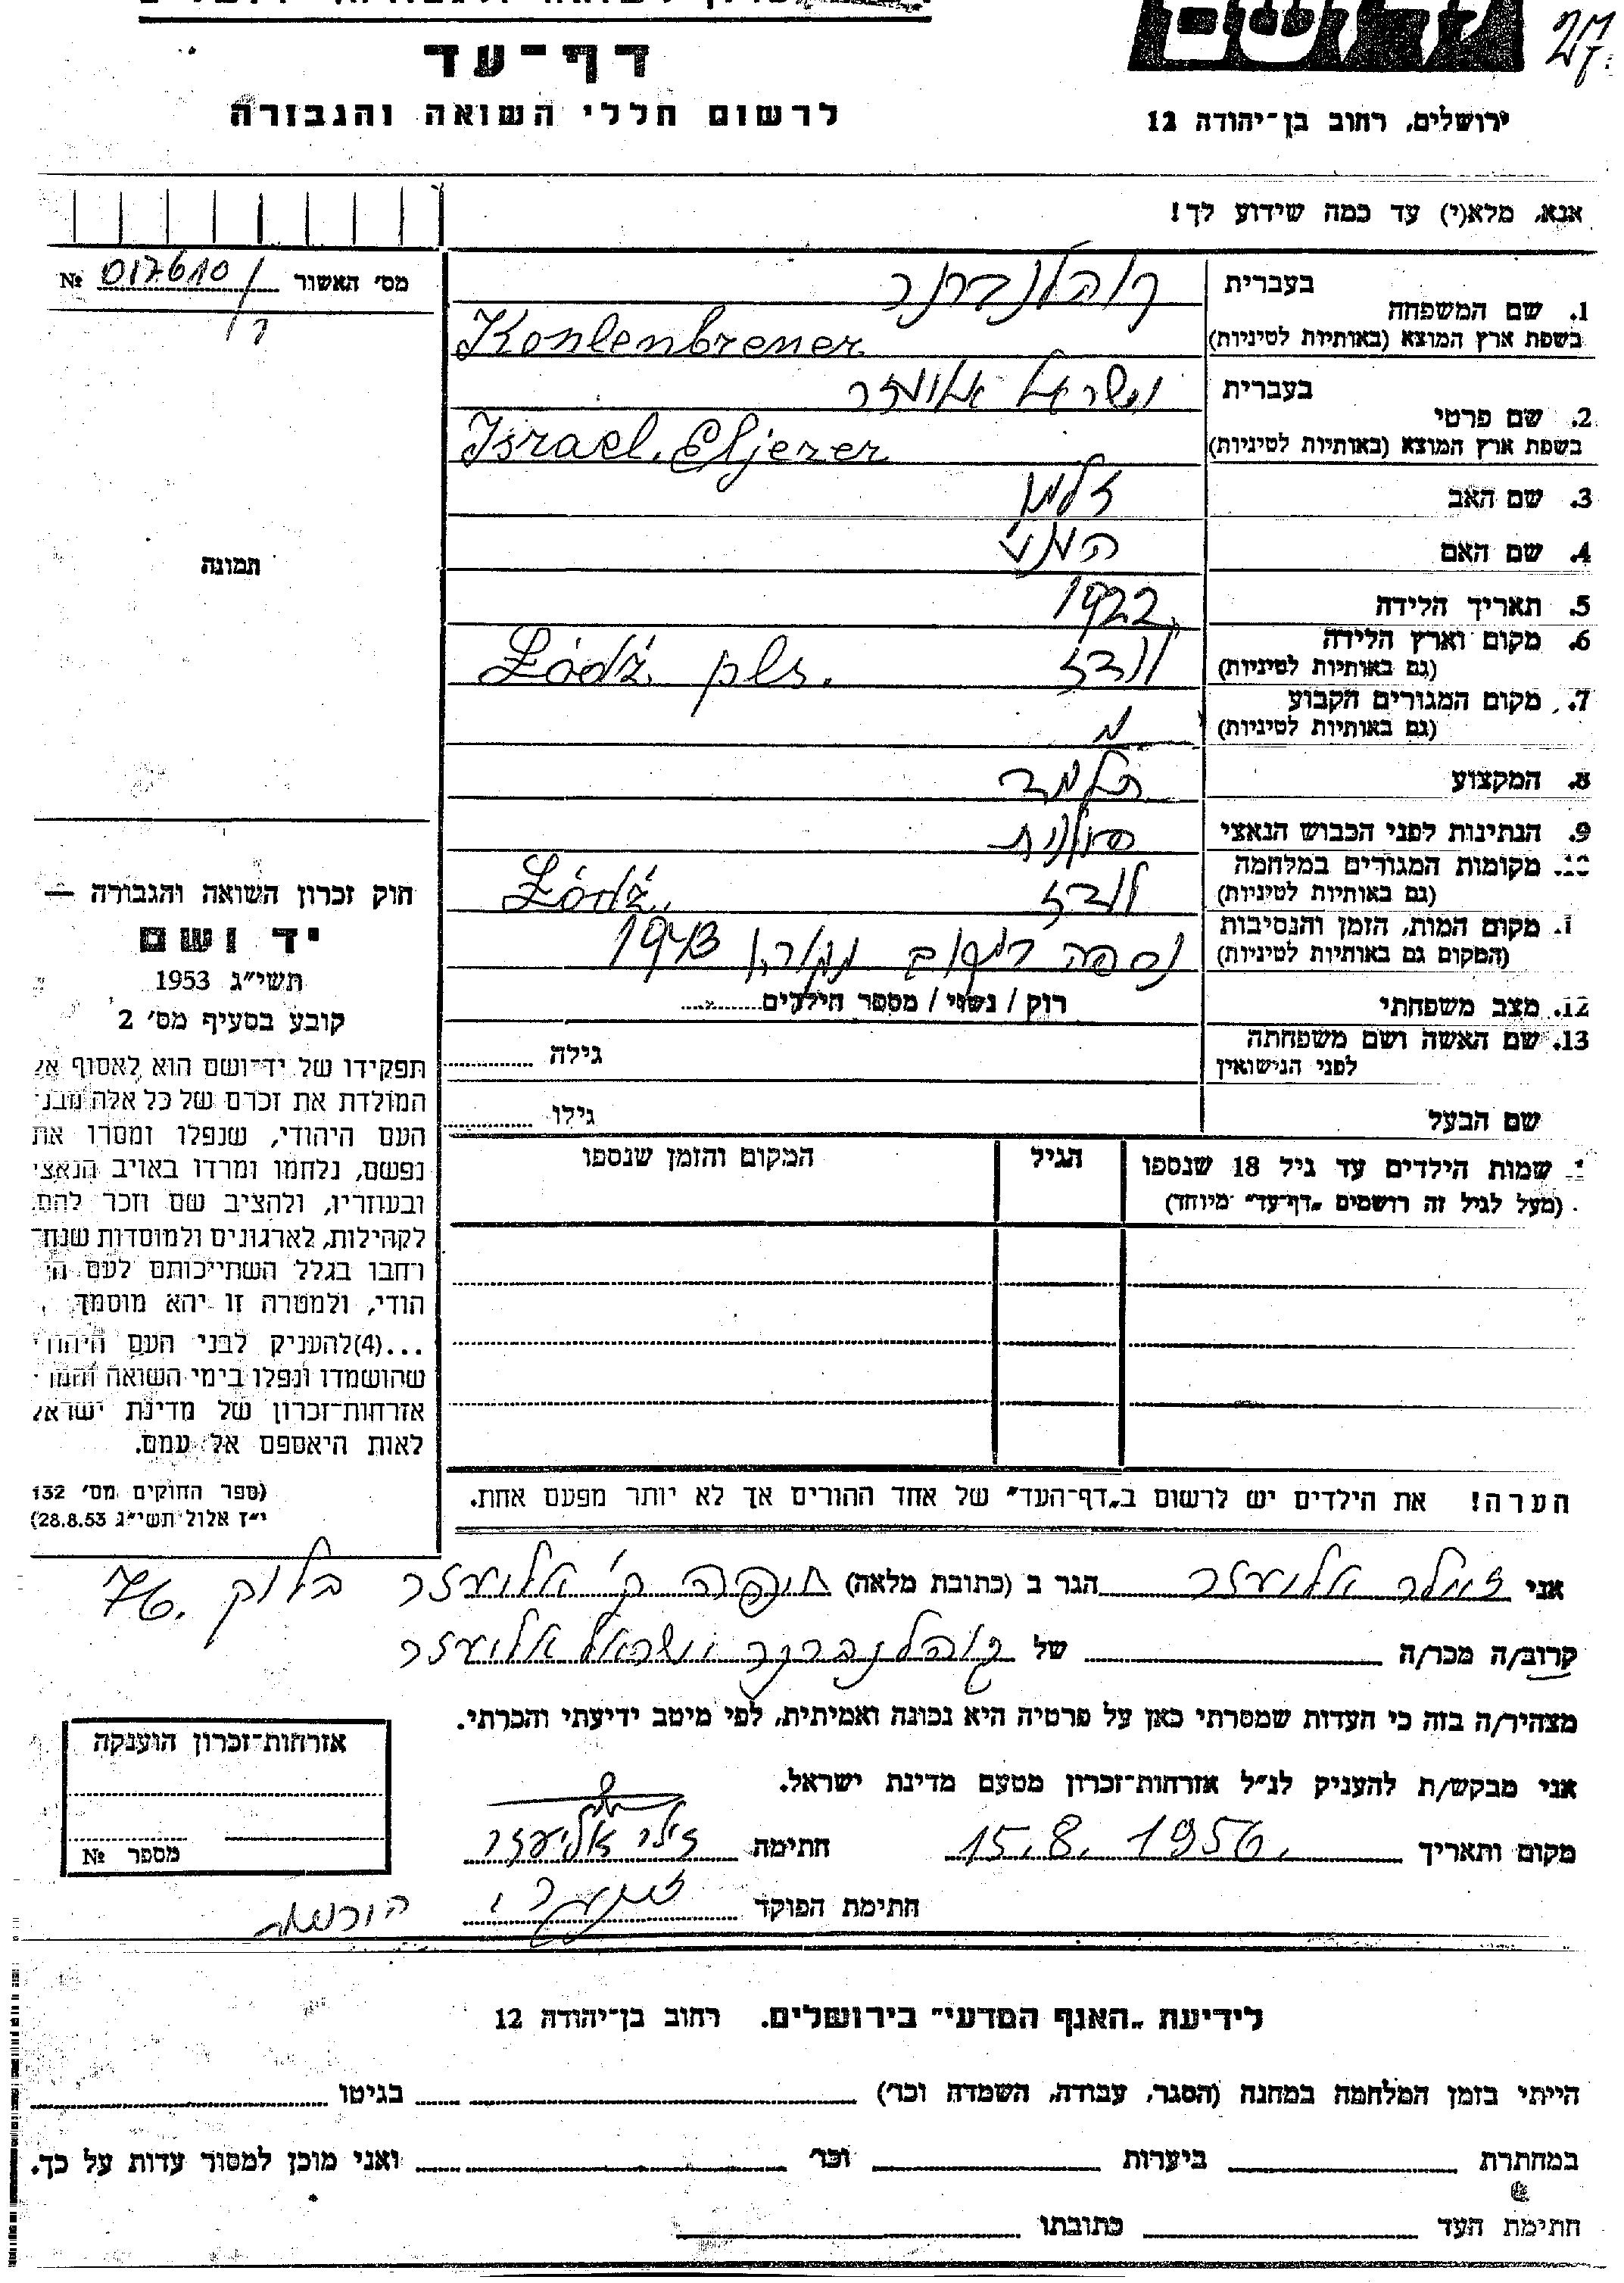 דף-עד
לרשום חללי השואה והגבורה
ירושלים, רחוב בן-יהודה 12
אנא, מלא(י) עד כמה שידוע לך!
מס' האשור 017610 №
1. שם המשפחה
בעברית קוהלנברנר
בשפת ארץ המוצא (באותיות לטיניות) Konlenbrener
2. שם פרטי
בעברית ישראל אליעזר
בשפת ארץ המוצא (באותיות לטיניות) Israel. Eljezer
3. שם האב זלמן
4. שם האם
5. תאריך הלידה 1922
6. מקום וארץ הלידה
(גם באותיות לטיניות) לודז Łódź pls.
7. מקום המגורים הקבוע
(גם באותיות לטיניות)
8. המקצוע תלמד
9. הנתינות לפני הכבוש הנאצי פולנית
10. מקומות המגורים במלחמה
(גם באותיות לטיניות) לודז Łódź.
מקום המות, הזמן והנסיבות
(המקום גם באותיות לטיניות) נספה 1943
12. מצב משפחתי רוק / נשוי / מספר הילדים
13. שם האשה ושם משפחתה
לפני הנישואין גילה
שם הבעל גילו
שמות הילדים עד גיל 18 שנספו הגיל המקום והזמן שנספו
(מעל לגיל זה רושמים "דף-עד" מיוחד)
הערה! את הילדים יש לרשום ב"דף-העד" של אחד ההורים אך לא יותר מפעם אחת.
תמונה
חוק זכרון השואה והגבורה —
יד ושם
תשי"ג 1953
קובע בסעיף מס' 2
תפקידו של יד-ושם הוא לאסוף אל
המולדת את זכרם של כל אלה מבני
העם היהודי, שנפלו ומסרו את
נפשם, נלחמו ומרדו באויב הנאצי
ובעוזריו, ולהציב שם וזכר להם,
לקהילות, לארגונים ולמוסדות שנח-
רחבו בגלל השתייכותם לעם הי
הודי, ולמטרה זו יהא מוסמך
...(4)להעניק לבני העם היהודי
שהושמדו ונפלו בימי השואה והמרי
אזרחות-זכרון של מדינת ישראל
לאות היאספם אל עמם.
(ספר החוקים מס' 132
י"ז אלול תשי"ג 28.8.53)
אני זילר אליעזר הגר ב (כתובת מלאה) חיפה ק' אליעזר בלוק 76.
קרוב/ה מכר/ה של קוהלנברנר ישראל אליעזר
מצהיר/ה בזה כי העדות שמסרתי כאן על פרטיה היא נכונה ואמיתית, לפי מיטב ידיעתי והכרתי.
אני מבקש/ת להעניק לנ"ל אזרחות-זכרון מטעם מדינת ישראל.
מקום ותאריך 15.8.1956. חתימה זילר אליעזר
חתימת הפוקד
אזרחות-זכרון הוענקה
מספר №
לידיעת "האגף המדעי" בירושלים. רחוב בן-יהודה 12
הייתי בזמן המלחמה במחנה (הסגר, עבודה, השמדה וכו') בגיטו
במחתרת ביערות וכו' ואני מוכן למסור עדות על כך.
חתימת העד כתובתו